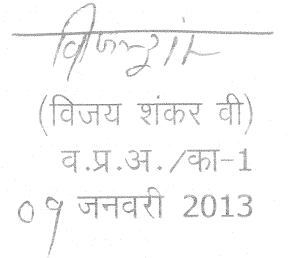 (विजय शंकर वी)
व.प्र.अ./का-1
09 जनवरी 2013